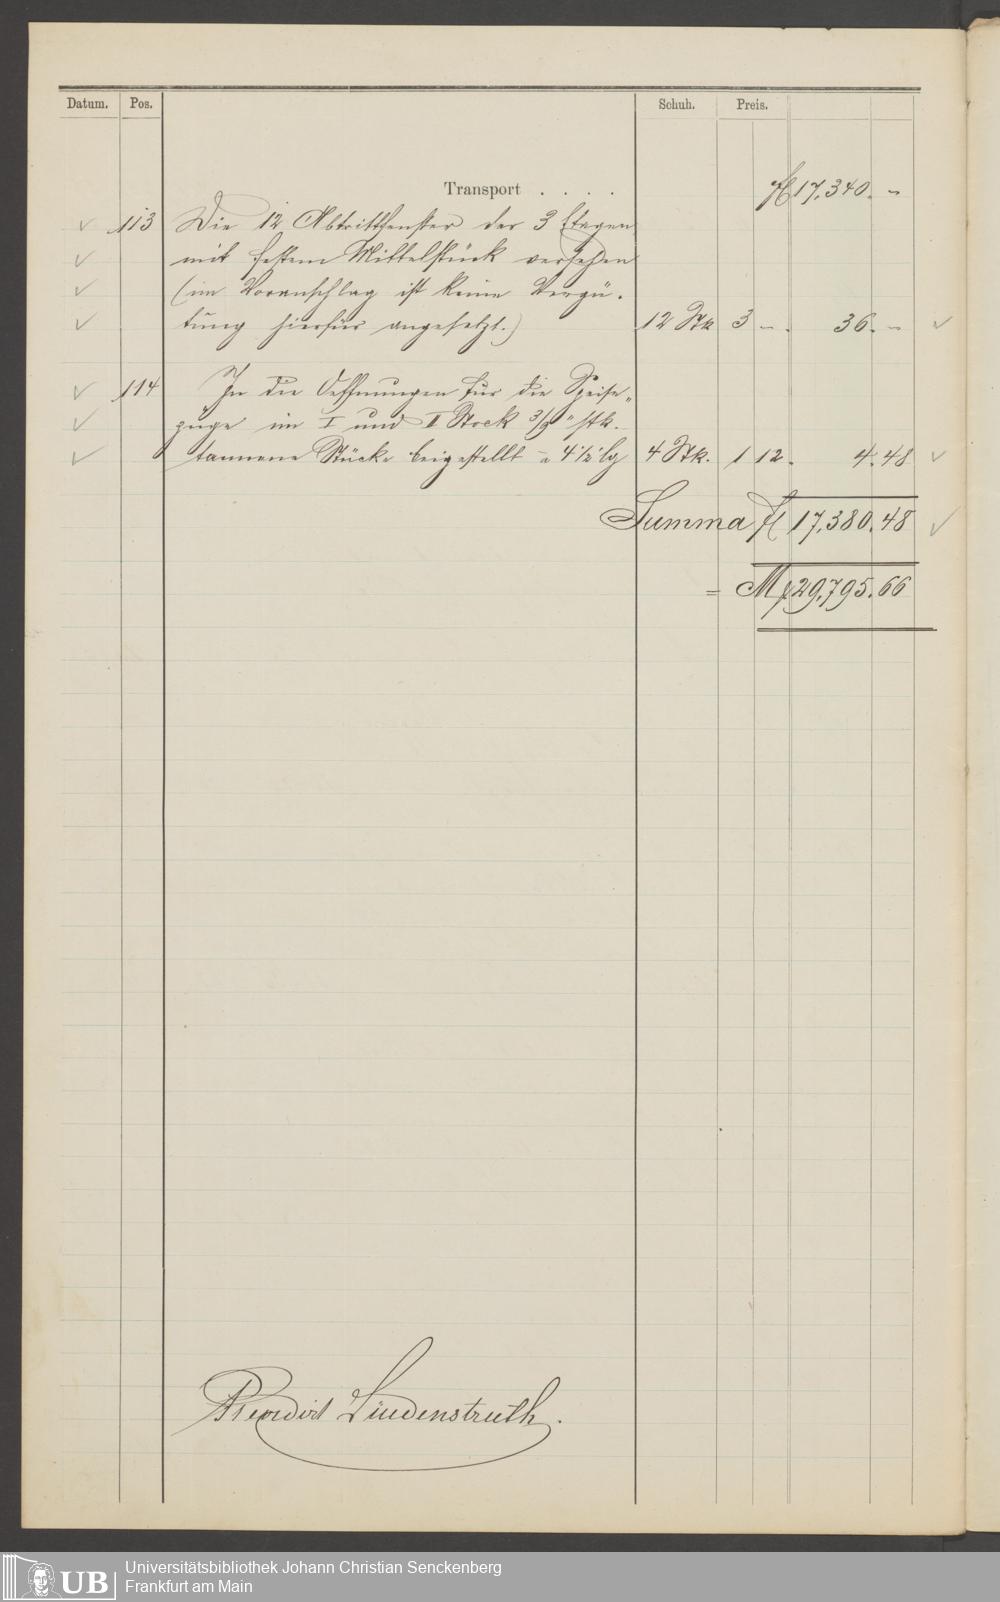 Datum. Pos. Schuh. Preis.
Transport . . . . fl 17,340. –
113 Die 12 Abtrittfenster der 3 Etagen
mit festem Mittelstück versehen
(im Voranschlag ist keine Vergü-
tung hierfür angesetzt.) 12 Stk 3 – . 36. –
114 In die Oeffnungen für die Speise-
züge im I und II Stock 3/4" stk.
tannene Stücke beigestellt a 4 1/2' lg 4 Stk. 1 12. 4. 48
Summa fl 17,380. 48
= Mk 29,795. 66
Benedict Lindenstruth.
UB Universitätsbibliothek Johann Christian Senckenberg
Frankfurt am Main